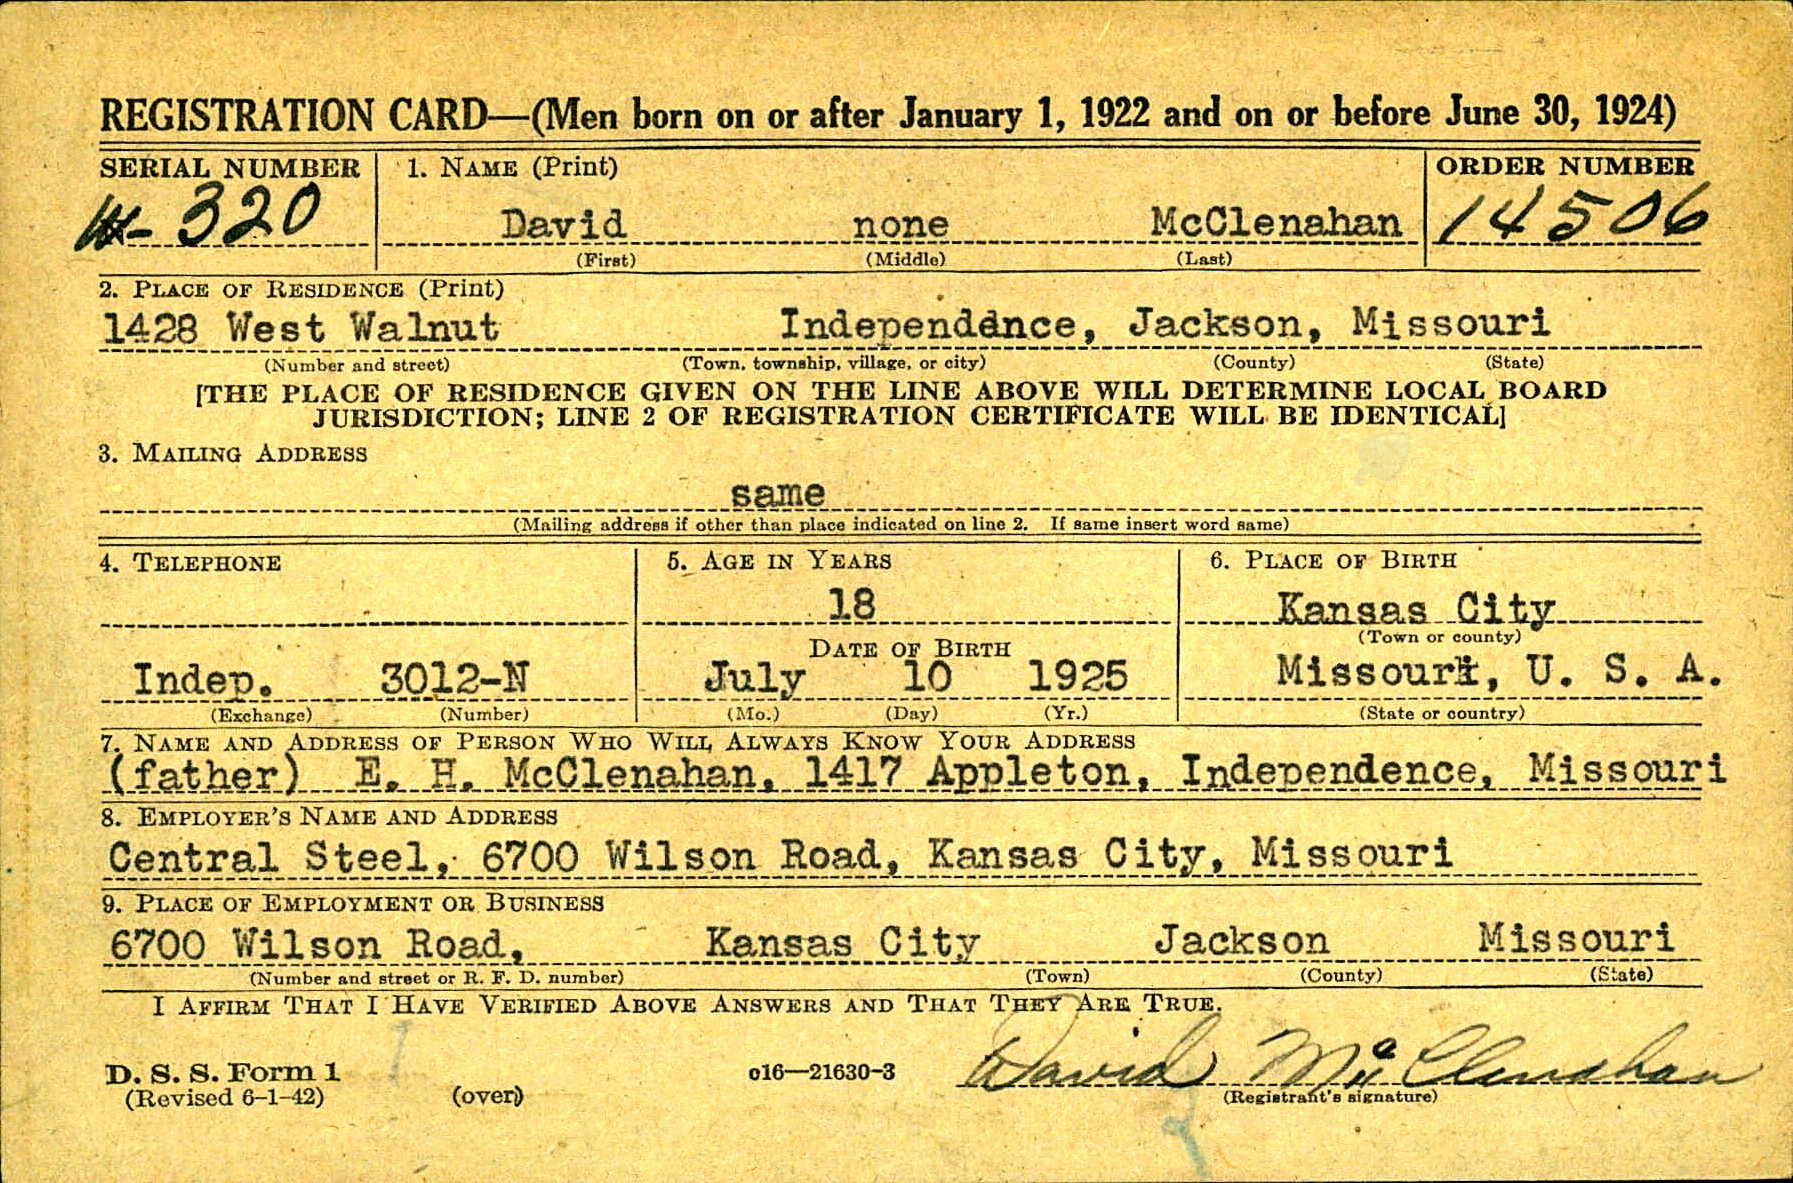 REGISTRATION CARD—(Men born on or after January 1, 1922 and on or before June 30, 1924)
SERIAL NUMBER 1. NAME (Print) ORDER NUMBER
W- 320 David none McClenahan 14506
(First) (Middle) (Last)
2. PLACE OF RESIDENCE (Print)
1428 West Walnut Independance, Jackson, Missouri
(Number and street) (Town, township, village, or city) (County) (State)
[THE PLACE OF RESIDENCE GIVEN ON THE LINE ABOVE WILL DETERMINE LOCAL BOARD
JURISDICTION; LINE 2 OF REGISTRATION CERTIFICATE WILL BE IDENTICAL]
3. MAILING ADDRESS
same
(Mailing address if other than place indicated on line 2. If same insert word same)
4. TELEPHONE 5. AGE IN YEARS 6. PLACE OF BIRTH
18 Kansas City
DATE OF BIRTH (Town or county)
Indep. 3012-N July 10 1925 Missouri, U. S. A.
(Exchange) (Number) (Mo.) (Day) (Yr.) (State or country)
7. NAME AND ADDRESS OF PERSON WHO WILL ALWAYS KNOW YOUR ADDRESS
(father) E. H. McClenahan, 1417 Appleton, Independence, Missouri
8. EMPLOYER'S NAME AND ADDRESS
Central Steel, 6700 Wilson Road, Kansas City, Missouri
9. PLACE OF EMPLOYMENT OR BUSINESS
6700 Wilson Road, Kansas City Jackson Missouri
(Number and street or R. F. D. number) (Town) (County) (State)
I AFFIRM THAT I HAVE VERIFIED ABOVE ANSWERS AND THAT THEY ARE TRUE.
D. S. S. Form 1 o16—21630-3 David McClenahan
(Revised 6-1-42) (over) (Registrant's signature)